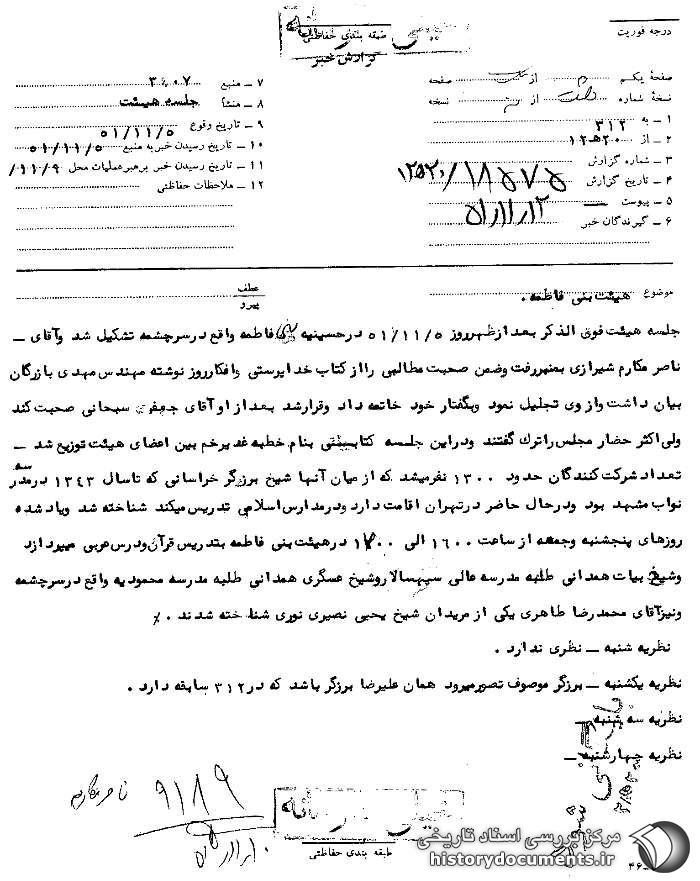 درجه فوریت
خیلی محرمانه
طبقه بندی حفاظتی
گزارش خبر
صفحهٔ یکم از صفحه
نسخهٔ شماره از نسخه
۱ – به ۳۱۲
۲ – از ۲۰ﻫ۱۲
۳ – شماره گزارش ۱۸۵۷۵/۱۲ﻫ۲۰
۴ – تاریخ گزارش ۱۲/۱۱/۵۱
۵ – پیوست
۶ – گیرندگان خبر
۷ – منبع ۳۰۰۷
۸ – منشأ جلسه هیئت
۹ – تاریخ وقوع ۵۱/۱۱/۵
۱۰ – تاریخ رسیدن خبر به منبع ۵۱/۱۱/۵
۱۱ – تاریخ رسیدن خبر برهبر عملیات محل ۱۱/۹/
۱۲ – ملاحظات حفاظتی
موضوع هیئت بنی فاطمه .
عطف
پیرو
جلسه هیئت فوق الذکر بعد از ظهر روز ۵۱/۱۱/۵ در حسینیه بنی فاطمه واقع در سرچشمه تشکیل شد وآقای –
ناصر مکارم شیرازی بمنبر رفت وضمن صحبت مطالبی را از کتاب خدا پرستی وافکار روز نوشته مهندس مهدی بازرگان
بیان داشت واز وی تجلیل نمود وبگفتار خود خاتمه داد وقرار شد بعد از او آقای جعفری سبحانی صحبت کند
ولی اکثر حضار مجلس را ترك گفتند ودر این جلسه کتاب بنام خطبه غدیر خم بین اعضای هیئت توزیع شد –
تعداد شرکت کنندگان حدود ۱۳۰۰ نفر میشد که از میان آنها شیخ برزگر خراسانی که تا سال ۱۳۴۳ در مدرسه
نواب مشهد بود ودر حال حاضر در تهران اقامت دارد ودر مدارس اسلامی تدریس میکند شناخته شد ویاد شده
روزهای پنجشنبه وجمعه از ساعت ۱۶۰۰ الی ۱۷۰۰ در هیئت بنی فاطمه بتدریس قرآن ودرس عربی میپردازد
وشیخ بیات همدانی طلبه مدرسه عالی سپهسالار وشیخ عسگری همدانی طلبه مدرسه محمودیه واقع در سرچشمه
ونیز آقای محمد رضا طاهری یکی از مریدان شیخ یحیی نصیری نوری شناخته شدند .
نظریه شنبه – نظری ندارد .
نظریه یکشنبه – برزگر موصوف تصور میرود همان علیرضا برزگر باشد که در ۳۱۲ سابقه دارد .
نظریه سه شنبه –
نظریه چهارشنبه –
ناصر مکارم
۹۱۸۹
خیلی محرمانه
طبقه بندی حفاظتی
مرکز بررسی اسناد تاریخی
historydocuments.ir